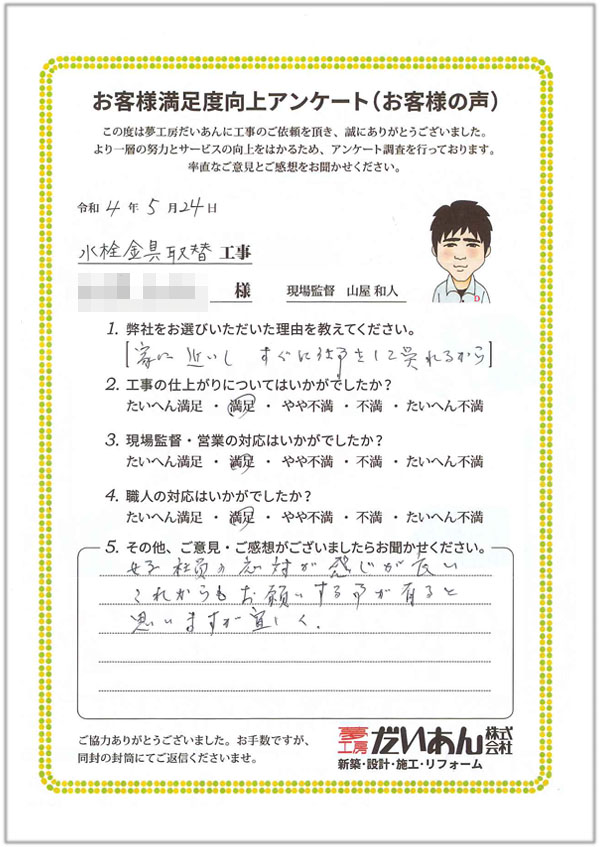 お客様満足度向上アンケート（お客様の声）
この度は夢工房だいあんに工事のご依頼を頂き、誠にありがとうございました。
より一層の努力とサービスの向上をはかるため、アンケート調査を行っております。
率直なご意見とご感想をお聞かせください。
令和 4 年 5 月 24 日
水栓金具取替 工事
様 現場監督 山屋 和人
D
1. 弊社をお選びいただいた理由を教えてください。
[家に近いし すぐに をして呉れるから]
2. 工事の仕上がりについてはいかがでしたか？
たいへん満足 ・ 満足 ・ やや不満 ・ 不満 ・ たいへん不満
3. 現場監督・営業の対応はいかがでしたか？
たいへん満足 ・ 満足 ・ やや不満 ・ 不満 ・ たいへん不満
4. 職人の対応はいかがでしたか？
たいへん満足 ・ 満足 ・ やや不満 ・ 不満 ・ たいへん不満
5. その他、ご意見・ご感想がございましたらお聞かせください。
女子社員の応対が感じが良い
これからもお願いする事が有ると
思いますが宜しく.
ご協力ありがとうございました。お手数ですが、
同封の封筒にてご返信くださいませ。
夢工房 だいあん 株式会社
新築・設計・施工・リフォーム